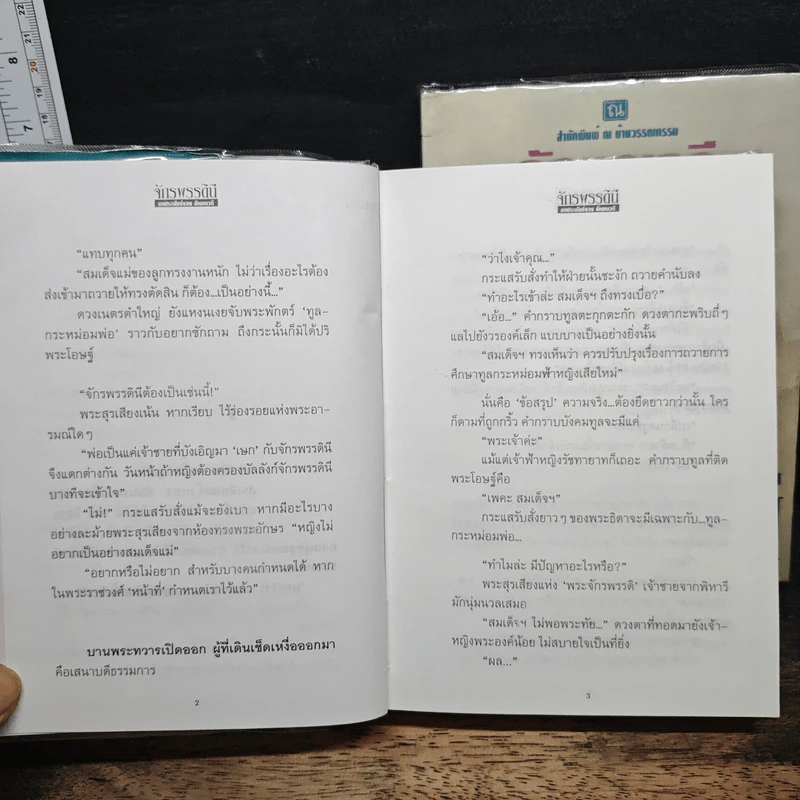 8
7
22
21
20
19
18
ณ
สำนักพิมพ์ ณ บ้านวรรณกรรม
จักรพรรดินี
"แทบทุกคน"
"สมเด็จแม่ของลูกทรงงานหนัก ไม่ว่าเรื่องอะไรต้อง
ส่งเข้ามาถวายให้ทรงตัดสิน ก็ต้อง...เป็นอย่างนี้..."
ดวงเนตรดำใหญ่ ยังแหงนเงยจับพระพักตร์ 'ทูล-
กระหม่อมพ่อ' ราวกับอยากซักถาม ถึงกระนั้นก็มิได้ปริ
พระโอษฐ์
"จักรพรรดินีต้องเป็นเช่นนี้!"
พระสุรเสียงเน้น หากเรียบ ไร้ร่องรอยแห่งพระอา-
รมณ์ใดๆ
"พ่อเป็นแค่เจ้าชายที่บังเอิญมา 'เษก' กับจักรพรรดินี
จึงแตกต่างกัน วันหน้าถ้าหญิงต้องครองบัลลังก์จักรพรรดินี
บางทีจะเข้าใจ"
"ไม่!" กระแสรับสั่งแม้จะยังเบา หากมีอะไรบาง
อย่างละม้ายพระสุรเสียงจากห้องทรงพระอักษร "หญิงไม่
อยากเป็นอย่างสมเด็จแม่"
"อยากหรือไม่อยาก สำหรับบางคนกำหนดได้ หาก
ในพระราชวงศ์ 'หน้าที่' กำหนดเราไว้แล้ว"
บานพระทวารเปิดออก ผู้ที่เดินเช็ดเหงื่อออกมา
คือเสนาบดีธรรมการ
2
จักรพรรดินี
"ว่าไงเจ้าคุณ..."
กระแสรับสั่งทำให้ฝ่ายนั้นชะงัก ถวายคำนับลง
"ทำอะไรเข้าล่ะ สมเด็จฯ ถึงทรงเบื่อ?"
"เอ้อ..." คำกราบทูลตะกุกตะกัก ดวงตากะพริบถี่ๆ
แลไปยังวรองค์เล็ก แบบบางเป็นอย่างยิ่งนั้น
"สมเด็จฯ ทรงเห็นว่า ควรปรับปรุงเรื่องการถวายการ
ศึกษาทูลกระหม่อมฟ้าหญิงเสียใหม่"
นั่นคือ 'ข้อสรุป' ความจริง...ต้องยืดยาวกว่านั้น ใคร
ก็ตามที่ถูกกริ้ว คำกราบบังคมทูลจะมีแค่
"พระเจ้าค่ะ"
แม้แต่เจ้าฟ้าหญิงรัชทายาทก็เถอะ คำกราบทูลที่ติด
พระโอษฐ์คือ
"เพคะ สมเด็จฯ"
กระแสรับสั่งยาวๆ ของพระธิดาจะมีเฉพาะกับ...ทูล-
กระหม่อมพ่อ...
"ทำไมล่ะ มีปัญหาอะไรหรือ?"
พระสุรเสียงแห่ง 'พระจักรพรรดิ' เจ้าชายจากพิหารี
มักนุ่มนวลเสมอ
"สมเด็จฯ ไม่พอพระทัย..." ดวงตาที่ทอดมายังเจ้า-
หญิงพระองค์น้อย ไม่สบายใจเป็นที่ยิ่ง
"ผล..."
3